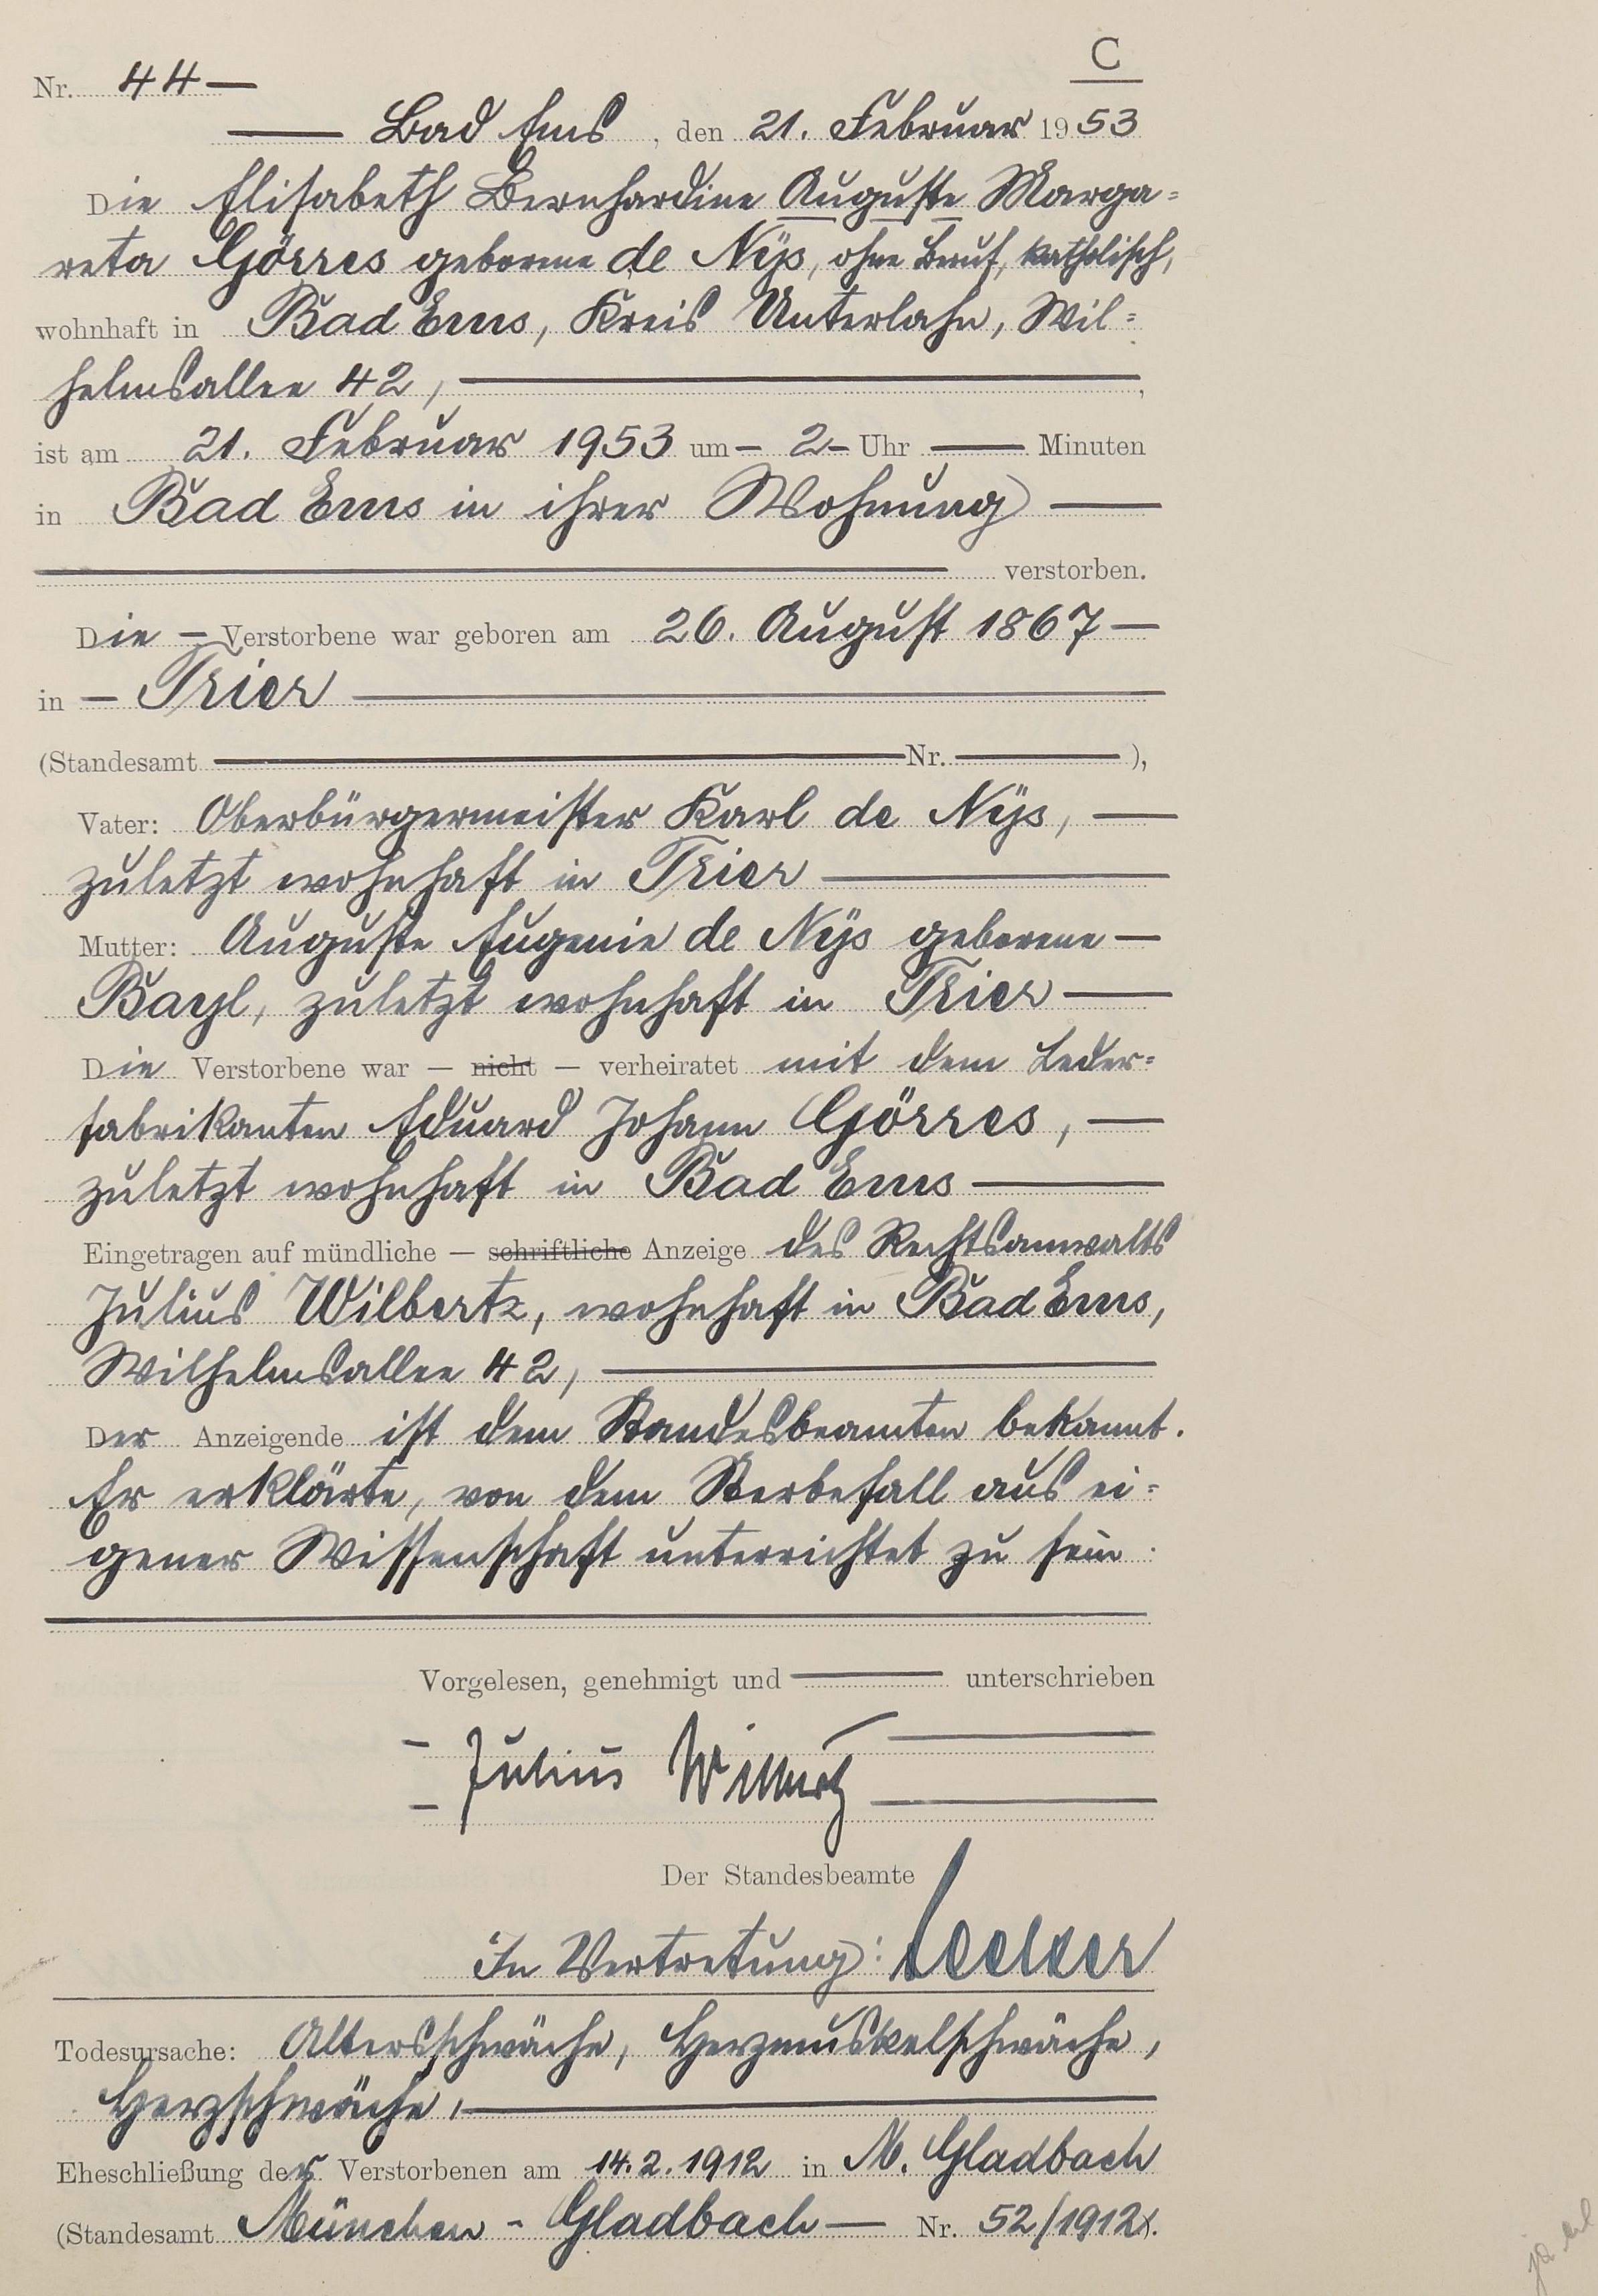 C
Nr. 44 —
— Bad Ems, den 21. Februar 1953
Die Elisabeth Bernhardine Auguste Marga=
reta Görres geborene de Nÿs, ohne Beruf, katholisch,
wohnhaft in Bad Ems, Kreis Unterlahn, Wil=
helmsallee 42, —,
ist am 21. Februar 1953 um – 2 – Uhr — Minuten
in Bad Ems in ihrer Wohnung —
— verstorben.
Die – Verstorbene war geboren am 26. August 1867 —
in – Trier —
(Standesamt — Nr. — ),
Vater: Oberbürgermeister Karl de Nÿs, —
zuletzt wohnhaft in Trier —
Mutter: Auguste Eugenie de Nÿs geborene —
Bayl, zuletzt wohnhaft in Trier —
Die Verstorbene war — nicht — verheiratet mit dem Leder=
fabrikanten Eduard Johann Görres, —
zuletzt wohnhaft in Bad Ems —
Eingetragen auf mündliche — schriftliche Anzeige des Rechtsanwalts
Julius Wilbertz, wohnhaft in Bad Ems,
Wilhelmsallee 42, —
Der Anzeigende ist dem Standesbeamten bekannt.
Er erklärte, von dem Sterbefall aus ei=
gener Wissenschaft unterrichtet zu sein.
Vorgelesen, genehmigt und — unterschrieben
– Julius Wilbertz —
Der Standesbeamte
In Vertretung:
Todesursache: Altersschwäche, Herzmuskelschwäche,
Herzschwäche, —
Eheschließung der Verstorbenen am 14.2.1912 in M. Gladbach
(Standesamt München - Gladbach — Nr. 52/1912).